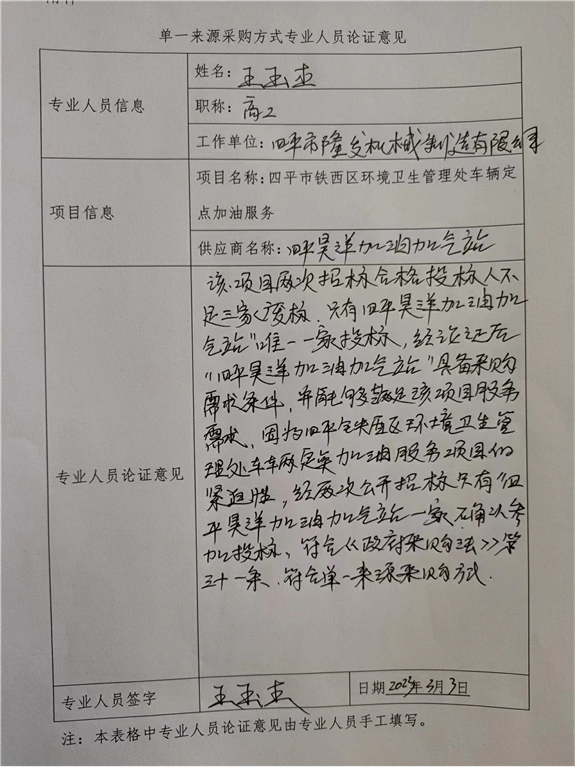 单一来源采购方式专业人员论证意见
专业人员信息
姓名：王玉杰
职称：高工
工作单位：四平市隆发机械制造有限公司
项目信息
项目名称：四平市铁西区环境卫生管理处车辆定
点加油服务
供应商名称：四平昊洋加油加气站
专业人员论证意见
该项目两次招标合格投标人不
足三家废标，只有四平昊洋加油加
气站"唯一一家投标，经论证后
"四平昊洋加油加气站"具备采购
需求条件，并能够满足该项目服务
需求，因为四平铁西区环境卫生管
理处车辆定点加油服务项目的
紧迫性，经两次公开招标只有"四
平昊洋加油加气站一家 确认参
加投标，符合《政府采购法》第
三十一条，符合单一来源采购方式．
专业人员签字
王玉杰
日期2023年3月3日
注：本表格中专业人员论证意见由专业人员手工填写。